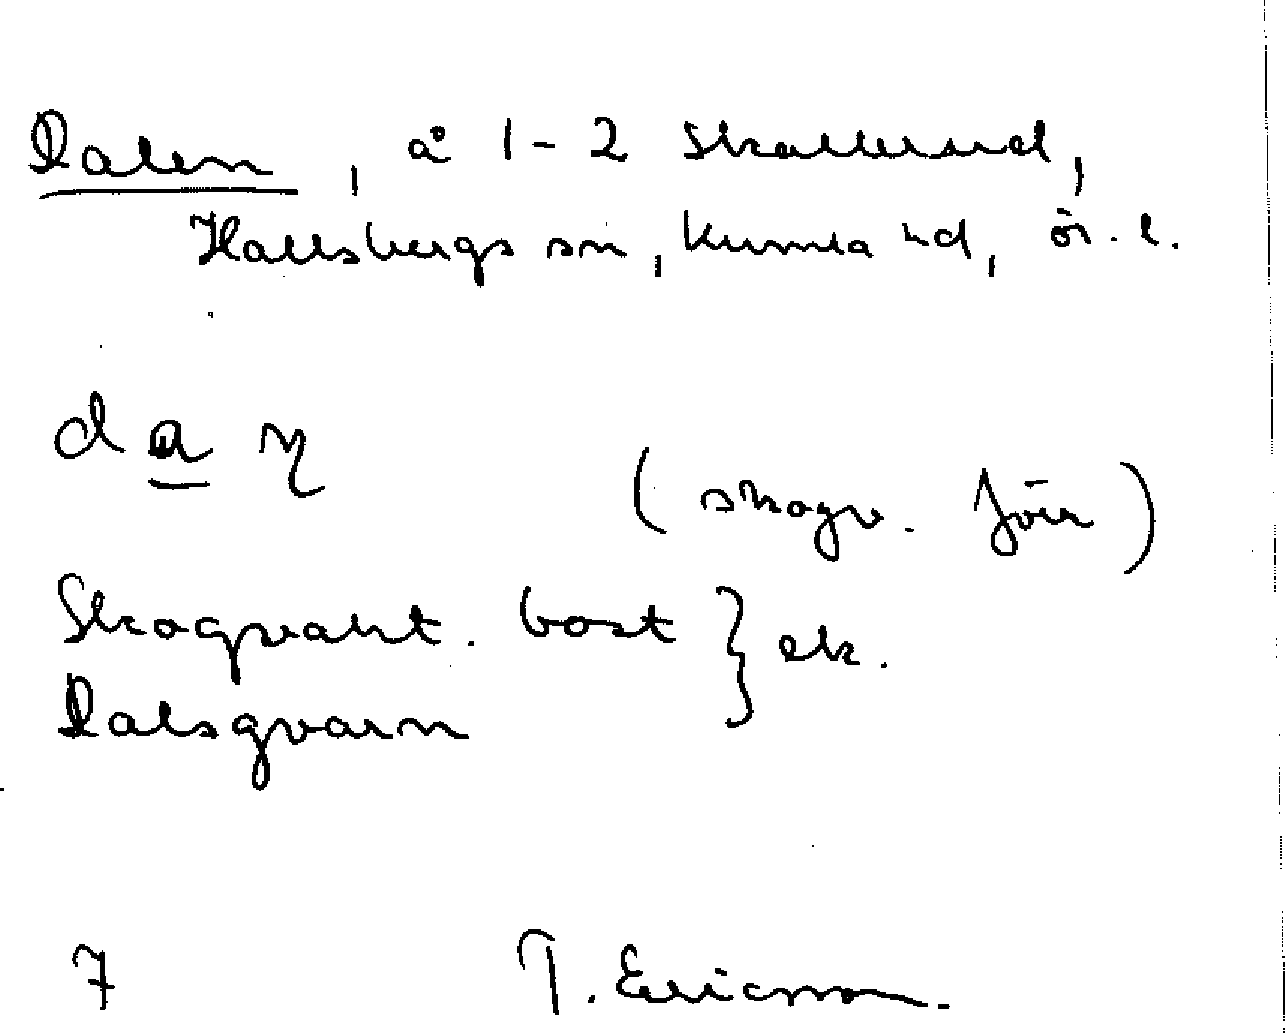 Dalen, å 1-2 Skallerud,
Hallsbergs sn, Kumla hd, ör. l.
da η
(skogv. förr)
Skogvakt. bost } ek.
Dalsqvarn
7 T. Ericsson.